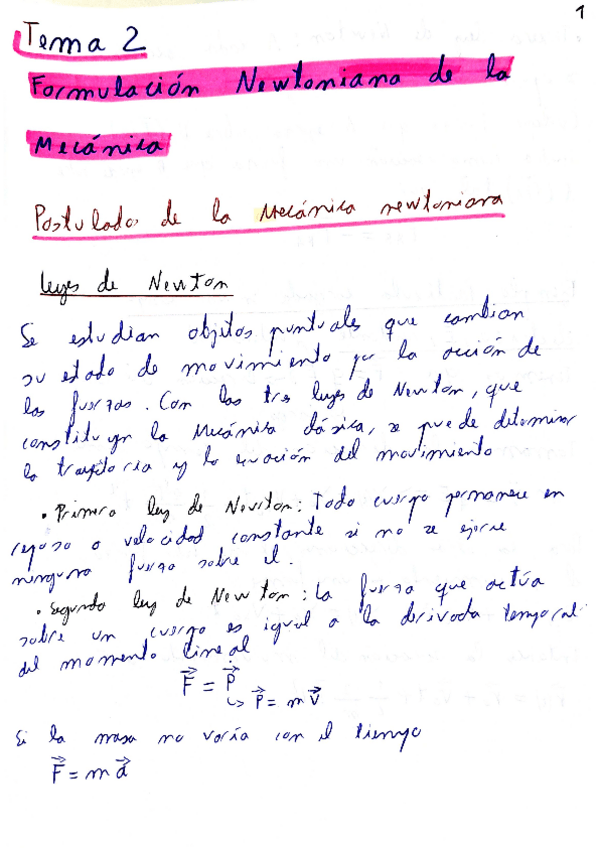 1
Tema 2
Formulación Newtoniana de la
Mecánica
Postulados de la Mecánica newtoniana
Leyes de Newton
Se estudian objetos puntuales que cambian
su estado de movimiento por la acción de
las fuerzas. Con las tres leyes de Newton, que
constituyen la Mecánica clásica, se puede determinar
la trayectoria y la ecuación del movimiento
• Primera ley de Newton: Todo cuerpo permanece en
reposo o velocidad constante si no se ejerce
ninguna fuerza sobre el.
• Segunda ley de Newton: La fuerza que actúa
sobre un cuerpo es igual a la derivada temporal
del momento lineal
F⃗ = p⃗̇
↳ p⃗ = m v⃗
Si la masa no varía con el tiempo
F⃗ = m a⃗